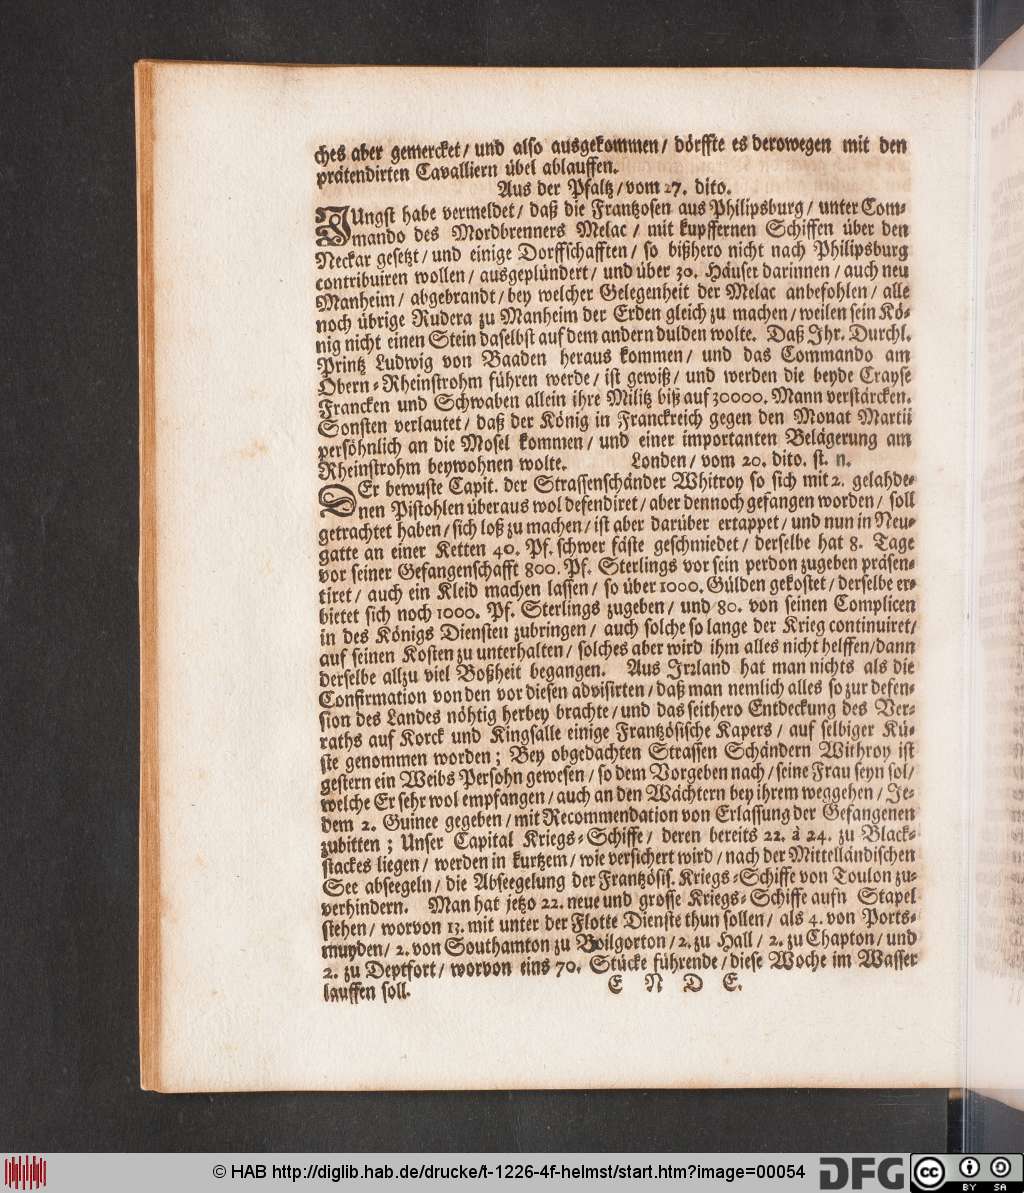 ches aber gemercket / und also ausgekommen / dörffte es derowegen mit den
prätendirten Cavalliern übel ablauffen.
Aus der Pfaltz / vom 27. dito.
JUngst habe vermeldet / daß die Frantzosen aus Philipsburg / unter Com-
mando des Mordbrenners Melac / mit kupffernen Schiffen über den
Neckar gesetzt / und einige Dorffschafften / so bißhero nicht nach Philipsburg
contribuiren wollen / ausgeplündert / und über 30. Häuser darinnen / auch neu
Manheim / abgebrandt / bey welcher Gelegenheit der Melac anbefohlen / alle
noch übrige Rudera zu Manheim der Erden gleich zu machen / weilen sein Kö-
nig nicht einen Stein daselbst auf dem andern dulden wolte. Daß Jhr. Durchl.
Printz Ludwig von Baaden heraus kommen / und das Commando am
Obern-Rheinstrohm führen werde / ist gewiß / und werden die beyde Crayse
Francken und Schwaben allein ihre Militz biß auf 30000. Mann verstärcken.
Sonsten verlautet / daß der König in Franckreich gegen den Monat Martii
persöhnlich an die Mosel kommen / und einer importanten Belägerung am
Rheinstrohm beywohnen wolte. Londen / vom 20. dito. st. n.
DEr bewuste Capit. der Strassenschänder Whitroy so sich mit 2. gelahde-
nen Pistohlen überaus wol defendiret / aber dennoch gefangen worden / soll
getrachtet haben / sich loß zu machen / ist aber darüber ertappet / und nun in Neu-
gatte an einer Ketten 40. Pf. schwer fäste geschmiedet / derselbe hat 8. Tage
vor seiner Gefangenschafft 800. Pf. Sterlings vor sein perdon zugeben präsen-
tiret / auch ein Kleid machen lassen / so über 1000. Gülden gekostet / derselbe er-
bietet sich noch 1000. Pf. Sterlings zugeben / und 80. von seinen Complicen
in des Königs Diensten zubringen / auch solche so lange der Krieg continuiret /
auf seinen Kosten zu unterhalten / solches aber wird ihm alles nicht helffen / dann
derselbe allzu viel Boßheit begangen. Aus Jrrland hat man nichts als die
Confirmation von den vor diesen advisirten / daß man nemlich alles so zur defen-
sion des Landes nöhtig herbey brachte / und das seithero Entdeckung des Ver-
raths auf Korck und Kingsalle einige Frantzösische Kapers / auf selbiger Kü-
ste genommen worden ; Bey obgedachten Strassen Schändern Withroy ist
gestern ein Weibs Persohn gewesen / so dem Vorgeben nach / seine Frau seyn sol /
welche Er sehr wol empfangen / auch an den Wächtern bey ihrem weggehen / Je-
dem 2. Guinee gegeben / mit Recommendation von Erlassung der Gefangenen
zubitten ; Unser Capital Kriegs-Schiffe / deren bereits 22. à 24. zu Black-
stackes liegen / werden in kurtzem / wie versichert wird / nach der Mittelländischen
See abseegeln / die Abseegelung der Frantzösis. Kriegs-Schiffe von Toulon zu-
verhindern. Man hat jetzo 22. neue und grosse Kriegs-Schiffe aufn Stapel
stehen / worvon 13. mit unter der Flotte Dienste thun sollen / als 4. von Ports-
muyden / 2. von Southamton zu Boilgorton / 2. zu Hall / 2. zu Chapton / und
2. zu Deptfort / worvon eins 70. Stücke führende / diese Woche im Wasser
lauffen soll. E N D E.
© HAB http://diglib.hab.de/drucke/t-1226-4f-helmst/start.htm?image=00054
DFG
cc BY SA